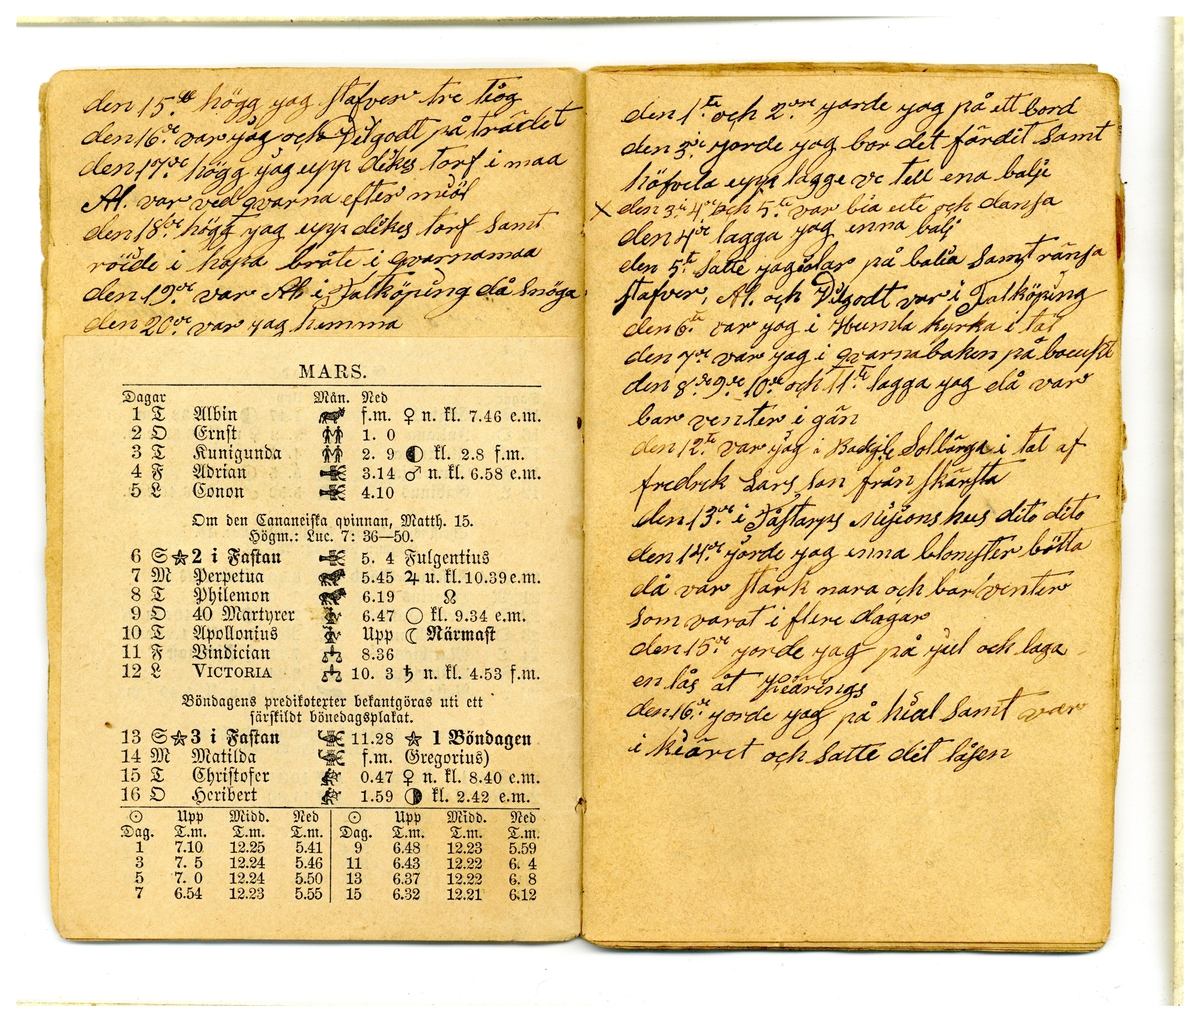 den 15de högg yag stafver tre tiog
den 16de var yag och Vilgodt på trädet
den 17de högg yag upp dikes torf i maa
Al. var ved qvarna efter miöl
den 18de högg yag upp dikes torf samt
röide i hopa bråte i qvarnamaa
den 19de var Al. i Falköping då snöga
den 20de var yag hemma
MARS.
Dagar Mån. Ned
1 T Albin f.m. ♀ n. kl. 7.46 e.m.
2 O Ernst 1. 0
3 T Kunigunda 2. 9 ◐ kl. 2.8 f.m.
4 F Adrian 3.14 ♂ n. kl. 6.58 e.m.
5 L Conon 4.10
Om den Cananeiska qvinnan, Matth. 15.
Högm.: Luc. 7: 36—50.
6 S ☆ 2 i Fastan 5. 4 Fulgentius
7 M Perpetua 5.45 ♃ u. kl. 10.39 e.m.
8 T Philemon 6.19 ☊
9 O 40 Martyrer 6.47 ○ kl. 9.34 e.m.
10 T Apollonius Upp ☾ Närmast
11 F Vindician 8.36
12 L VICTORIA 10. 3 ♄ n. kl. 4.53 f.m.
Böndagens predikotexter bekantgöras uti ett
särskildt bönedagsplakat.
13 S ☆ 3 i Fastan 11.28 ☆ 1 Böndagen
14 M Matilda f.m. Gregorius)
15 T Christofer 0.47 ♀ n. kl. 8.40 e.m.
16 O Heribert 1.59 ◑ kl. 2.42 e.m.
☉ Upp Midd. Ned ☉ Upp Midd. Ned
Dag. T.m. T.m. T.m. Dag. T.m. T.m. T.m.
1 7.10 12.25 5.41 9 6.48 12.23 5.59
3 7. 5 12.24 5.46 11 6.43 12.22 6. 4
5 7. 0 12.24 5.50 13 6.37 12.22 6. 8
7 6.54 12.23 5.55 15 6.32 12.21 6.12
den 1ta och 2dre yorde yag på ett bord
den 3de yorde yag bor det färdit samt
höfvela upp lagge ve tell ena balje
x den 3de 4de och 5te var bia ute och dansa
den 4de lagga yag enna balj
den 5te satte yag iolar på balia samt ränsa
stafver, Al. och Vilgodt var i Falköping
den 6te var yag i Hunda kyrka i tal
den 7de var yag i qvarnabaken på
den 8de 9de 10de och 11te lagga yag då var
bar venter i gän
den 12te var yag i Solbärga i tal af
fredrek Lars son från skärsta
den 13de i Fåstarps Misions hus dito dito
den 14de yorde yag enna blomster bötta
då var stark nara och bar venter
som varat i flere dagar
den 15de yorde yag på yul och laga
en lås åt Kiärings
den 16de yorde yag på hial samt var
i kiäret och satte dit låsen